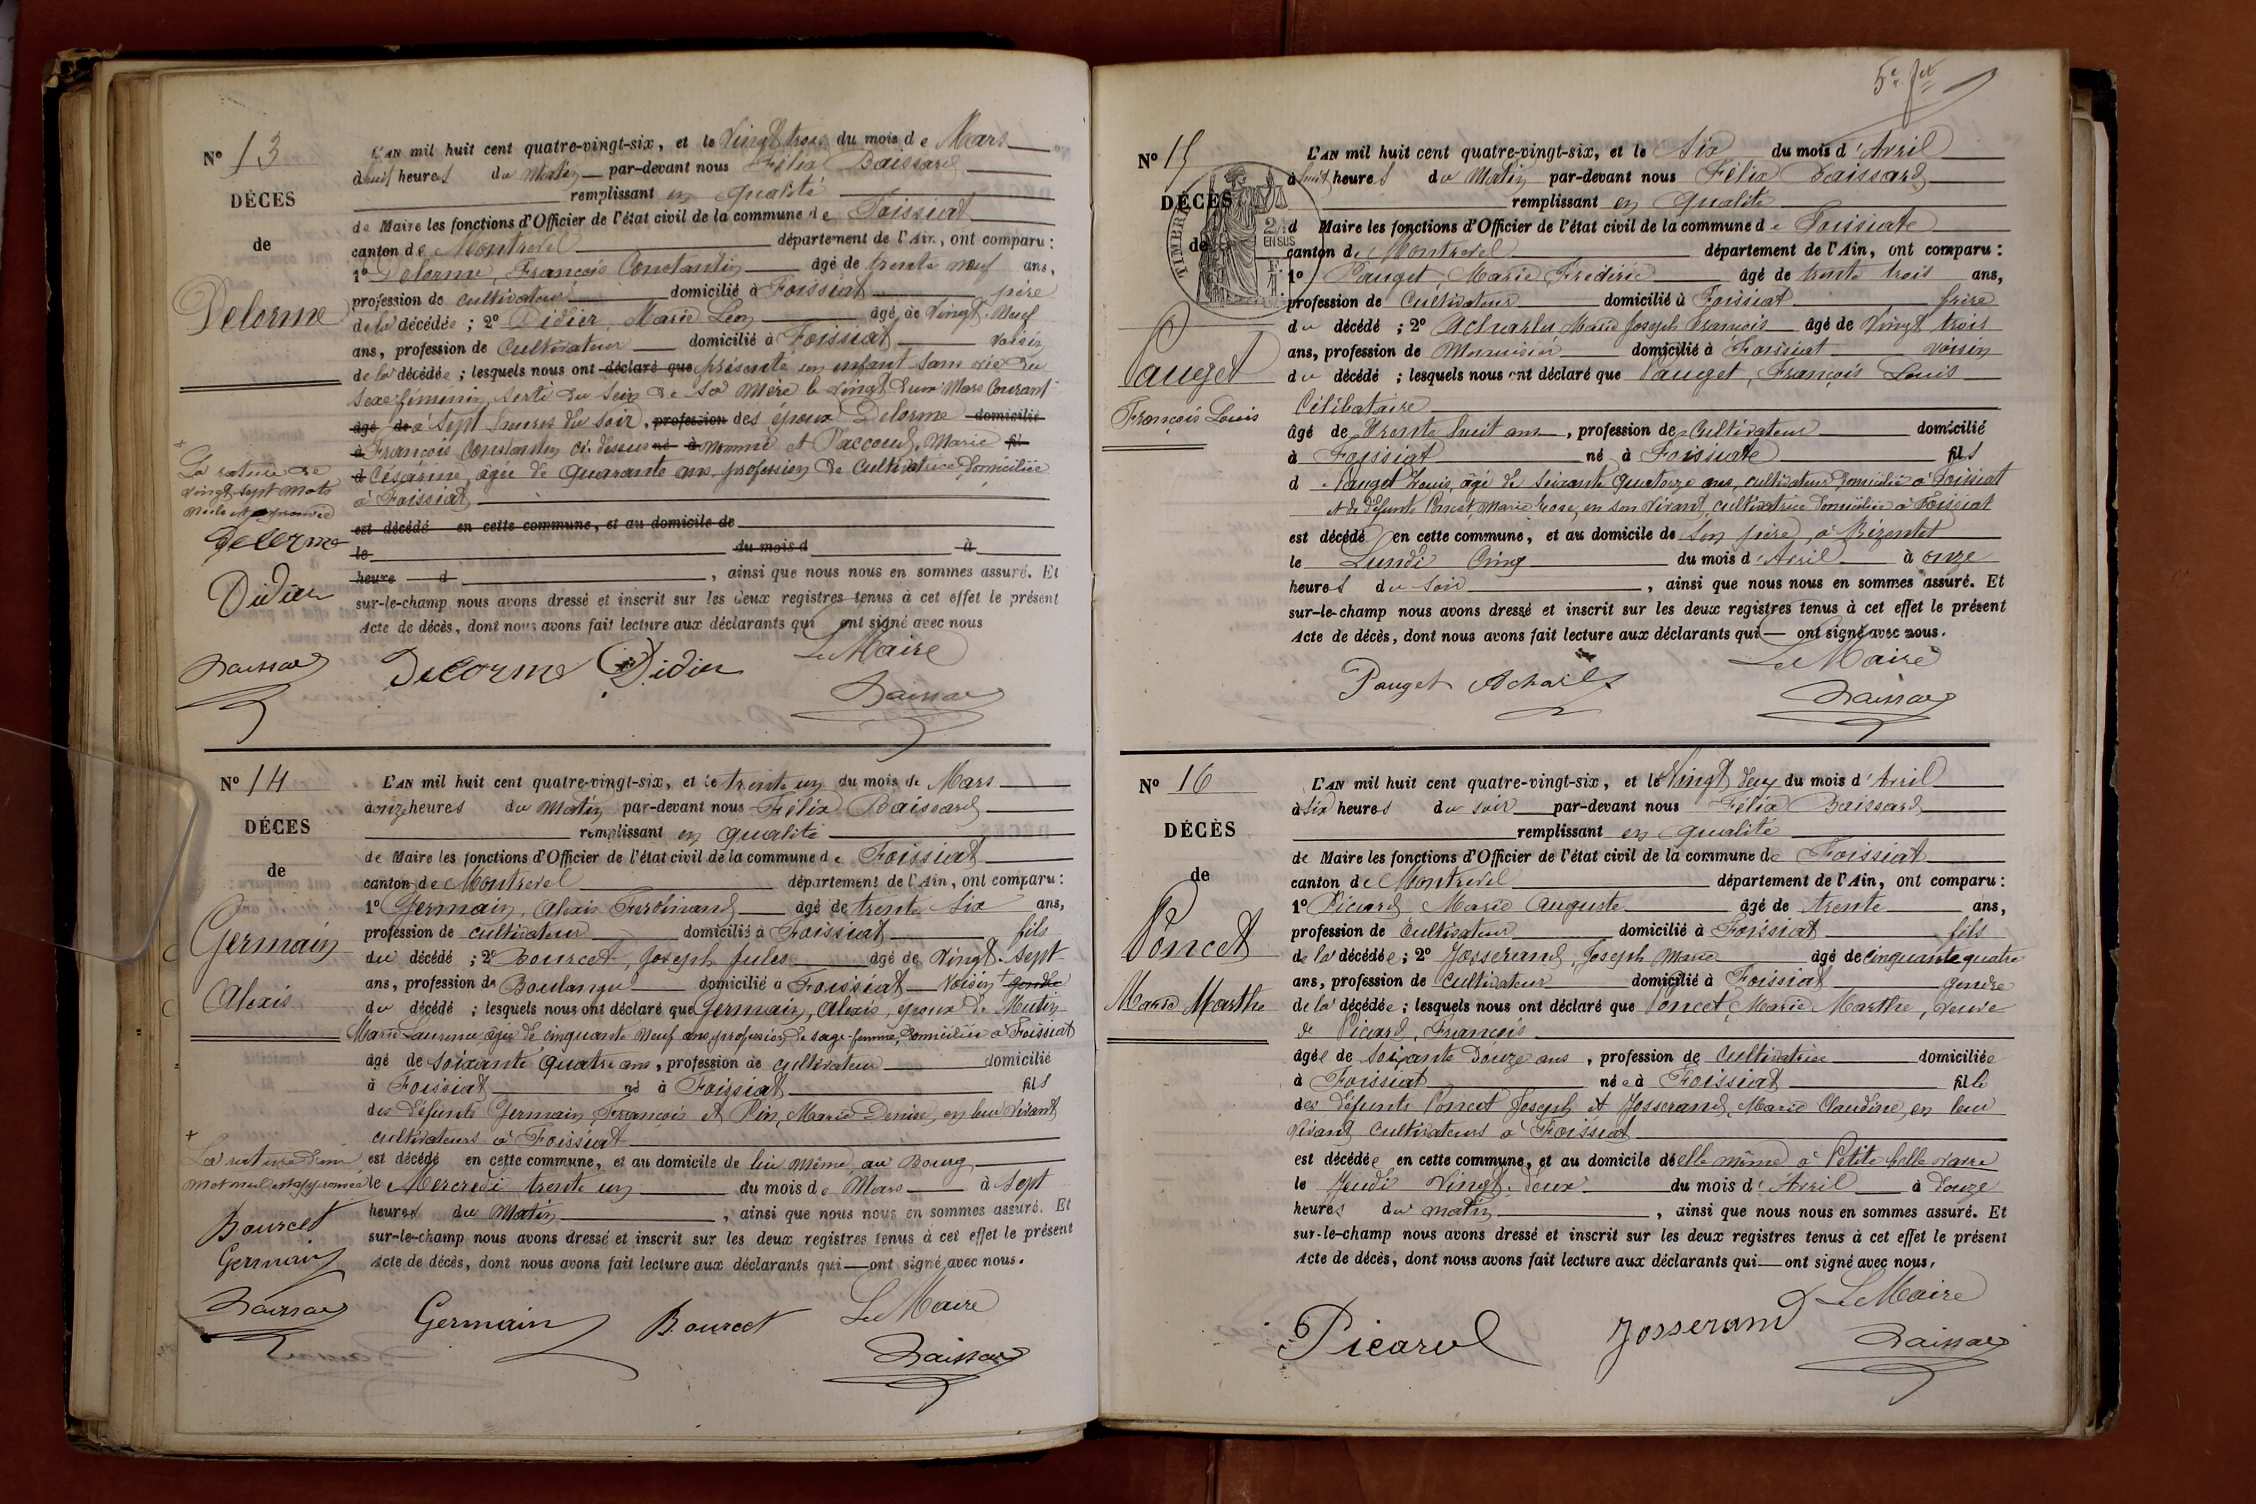 Nº 13
DÉCES
de
Delorme
L'AN mil huit cent quatre-vingt-six, et le Vingt trois du mois de Mars
à huit heures du Matin par-devant nous Félix Baissard
remplissant en qualité
de Maire les fonctions d'Officier de l'état civil de la commune de Foissiat
canton de Montrevel département de l'Ain, ont comparu :
1º Delorme, François Constantin âgé de trente neuf ans,
profession de cultivateur domicilié à Foissiat père
de la décédée ; 2º Didier, Marie Léon âgé de Vingt-Neuf
ans, profession de Cultivateur domicilié à Foissiat voisin
de la décédée ; lesquels nous ont déclaré que présenté un enfant sans vie du
sexe féminin, sorti du sein de sa Mère le vingt deux Mars Courant
âgé de à sept heures du soir, profession des époux Delorme domicilié
à François Constantin ci-dessus né à nommé et Paccoud, Marie fil
d Césarine, âgée de quarante ans profession de Cultivatrice domiciliée
à Foissiat
est décédé en cette commune, et au domicile de
le du mois d à
heure d , ainsi que nous nous en sommes assuré. Et
sur-le-champ nous avons dressé et inscrit sur les deux registres tenus à cet effet le présent
Acte de décès, dont nous avons fait lecture aux déclarants qui ont signé avec nous
La rature de
vingt sept mots
nuls est approuvée
Delorme
Didier
Baissard Delorme Didier Le Maire
Baissard
Nº 14
DÉCES
de
Germain
Alexis
L'AN mil huit cent quatre-vingt-six, et le trente un du mois de Mars
à onze heures du Matin par-devant nous Félix Baissard
remplissant en qualité
de Maire les fonctions d'Officier de l'état civil de la commune de Foissiat
canton de Montrevel département de l'Ain, ont comparu :
1º Germain, Alexis Ferdinand âgé de trente six ans,
profession de cultivateur domicilié à Foissiat fils
du décédé ; 2º Bourcet, Joseph Jules âgé de Vingt-sept
ans, profession de Boulanger domicilié à Foissiat Voisin + gendre
du décédé ; lesquels nous ont déclaré que Germain, Alexis, époux de Mutin
Marie Laurence, âgée de cinquante neuf ans, profession de sage-femme, domiciliée à Foissiat
âgé de soixante quatre ans, profession de cultivateur domicilié
à Foissiat né à Foissiat fils
des défunts Germain, François et Pin, Marie Denise, en leur vivant
cultivateurs à Foissiat
est décédé en cette commune, et au domicile de lui même, au Bourg
le Mercredi trente un du mois de Mars à Sept
heures du Matin , ainsi que nous nous en sommes assuré. Et
sur-le-champ nous avons dressé et inscrit sur les deux registres tenus à cet effet le présent
Acte de décès, dont nous avons fait lecture aux déclarants qui ont signé avec nous.
+
La rature d'un
mot nul est approuvée
Bourcet
Germain
Baissard
Germain Bourcet Le Maire
Baissard
5e fet
Nº 15
DÉCES
de
TIMBRE
2/10
EN SUS
Pauget
François Louis
L'AN mil huit cent quatre-vingt-six, et le Six du mois d'Avril
à huit heures du Matin par-devant nous Félix Baissard
remplissant en qualité
d Maire les fonctions d'Officier de l'état civil de la commune de Foissiate
canton de Montrevel département de l'Ain, ont comparu :
1º Pauget, Marie Frédéric âgé de trente trois ans,
profession de Cultivateur domicilié à Foissiat frère
du décédé ; 2º Marie Joseph François âgé de Vingt trois
ans, profession de Menuisier domicilié à Foissiat voisin
du décédé ; lesquels nous ont déclaré que Pauget, François Louis
Célibataire
âgé de trente huit ans, profession de Cultivateur domicilié
à Foissiat né à Foissiate fils
d Pauget Louis, âgé de soixante quatorze ans, cultivateur domicilié à Foissiat
et de défunte Marie Rose, en son vivant, cultivatrice domiciliée à Foissiat
est décédé en cette commune, et au domicile de son père, à Bézentet
le Lundi Cinq du mois d'Avril à onze
heures du soir , ainsi que nous nous en sommes assuré. Et
sur-le-champ nous avons dressé et inscrit sur les deux registres tenus à cet effet le présent
Acte de décès, dont nous avons fait lecture aux déclarants qui ont signé avec nous.
Le Maire
Pauget Baissard
Nº 16
DÉCÈS
de
Poncet
Marie Marthe
L'AN mil huit cent quatre-vingt-six, et le Vingt deux du mois d'Avril
à Six heures du soir par-devant nous Félix Baissard
remplissant en qualité
de Maire les fonctions d'Officier de l'état civil de la commune de Foissiat
canton de Montrevel département de l'Ain, ont comparu :
1º Picard Marie Auguste âgé de trente ans,
profession de Cultivateur domicilié à Foissiat fils
de la décédée ; 2º Josserand, Joseph Marie âgé de cinquante quatre
ans, profession de cultivateur domicilié à Foissiat gendre
de la décédée ; lesquels nous ont déclaré que Poncet, Marie Marthe, veuve
de Picard, François
âgée de soixante douze ans, profession de cultivatrice domiciliée
à Foissiat née à Foissiat fille
des défunts Poncet Joseph et Josserand, Marie Claudine, en leur
vivant Cultivateurs à Foissiat
est décédée en cette commune, et au domicile d'elle même à Petite
le Jeudi Vingt-deux du mois d'Avril à Douze
heures du matin , ainsi que nous nous en sommes assuré. Et
sur-le-champ nous avons dressé et inscrit sur les deux registres tenus à cet effet le présent
Acte de décès, dont nous avons fait lecture aux déclarants qui ont signé avec nous,
Le Maire
Picard Josserand Baissard